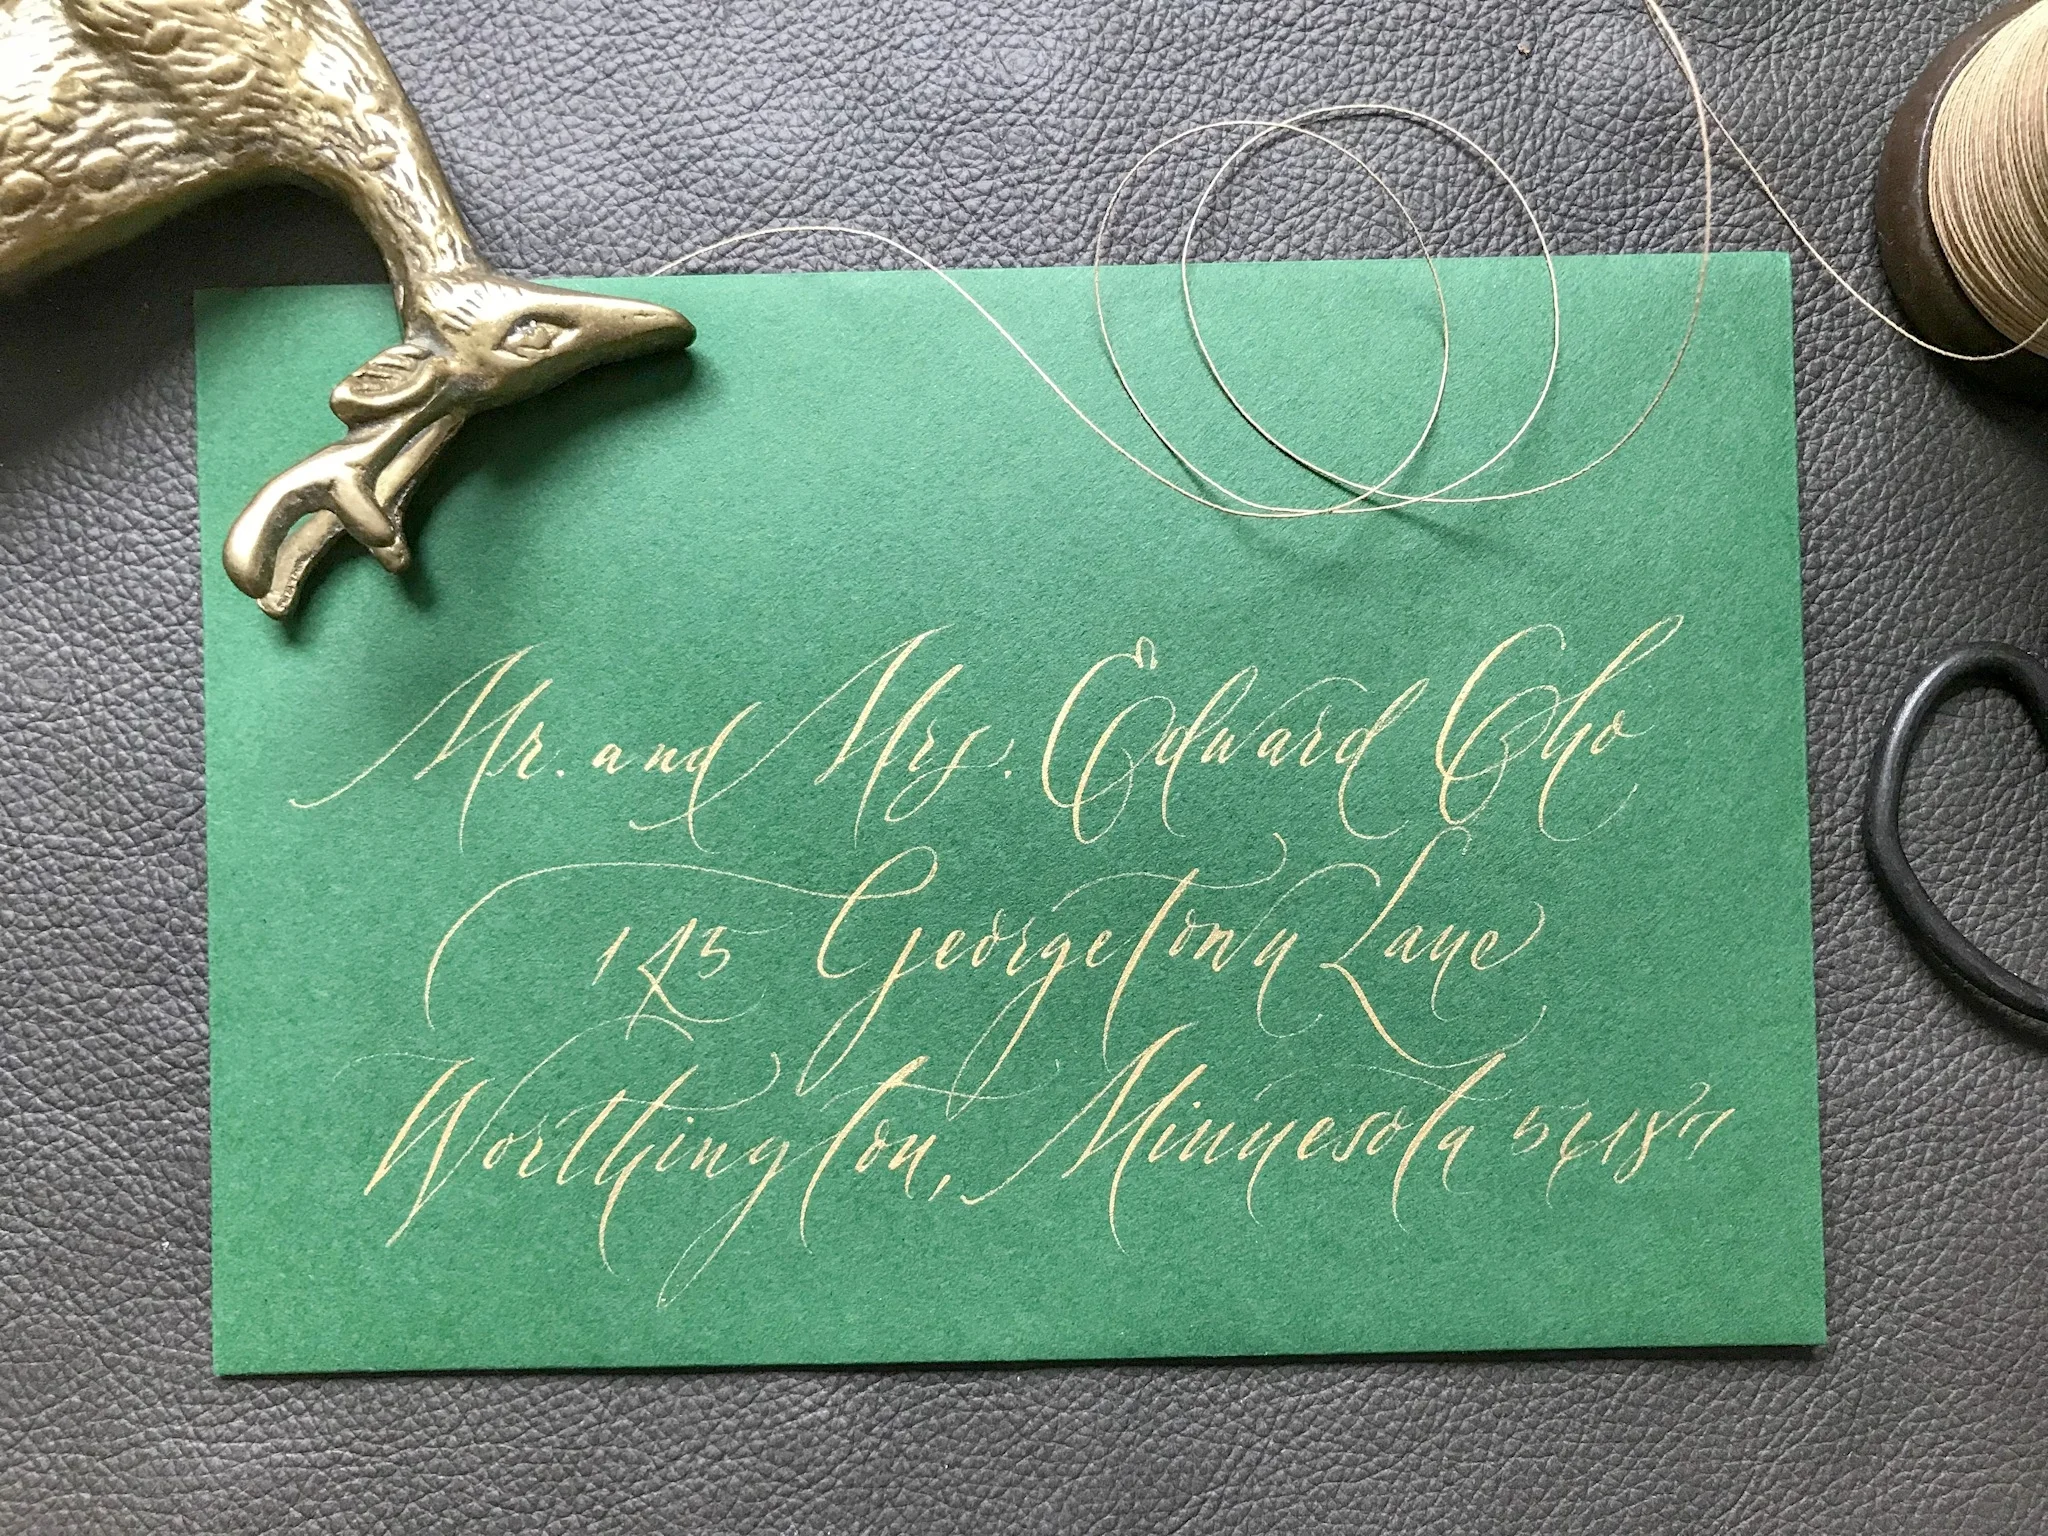 Mr. and Mrs. Edward Cho
145 Georgetown Lane
Worthington, Minnesota 56187